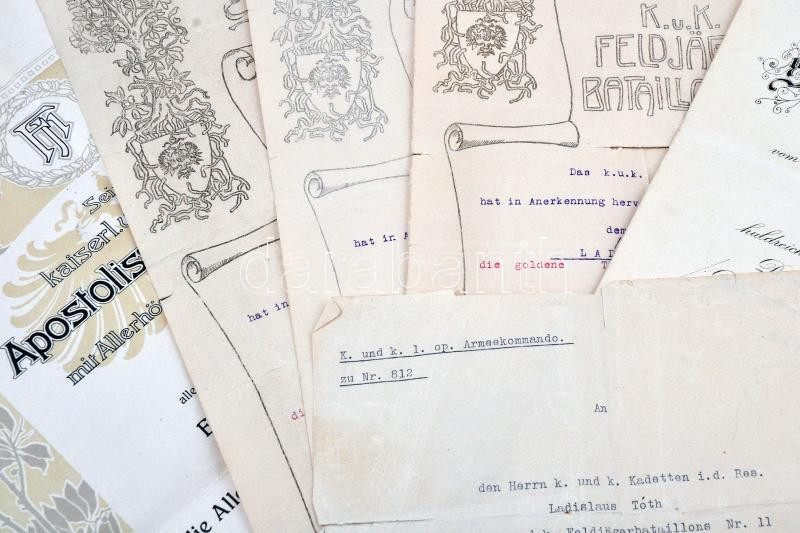 Sein
kaiserl.u
Apostolis
mit Allerhö
alle
die Alle
hat in
di
hat in A
K.u.K.
FELDJÄG
BATAILLO
Das k.u.k.
hat in Anerkennung herv
dem
L A D
die goldene T
vom
huldreich
K. und k. 1. op. Armeekommando.
zu Nr. 812
An
den Herrn k. und k. Kadetten i.d. Res.
Ladislaus Tóth
d.k. Feldjägerbataillons Nr. 11
darabanth